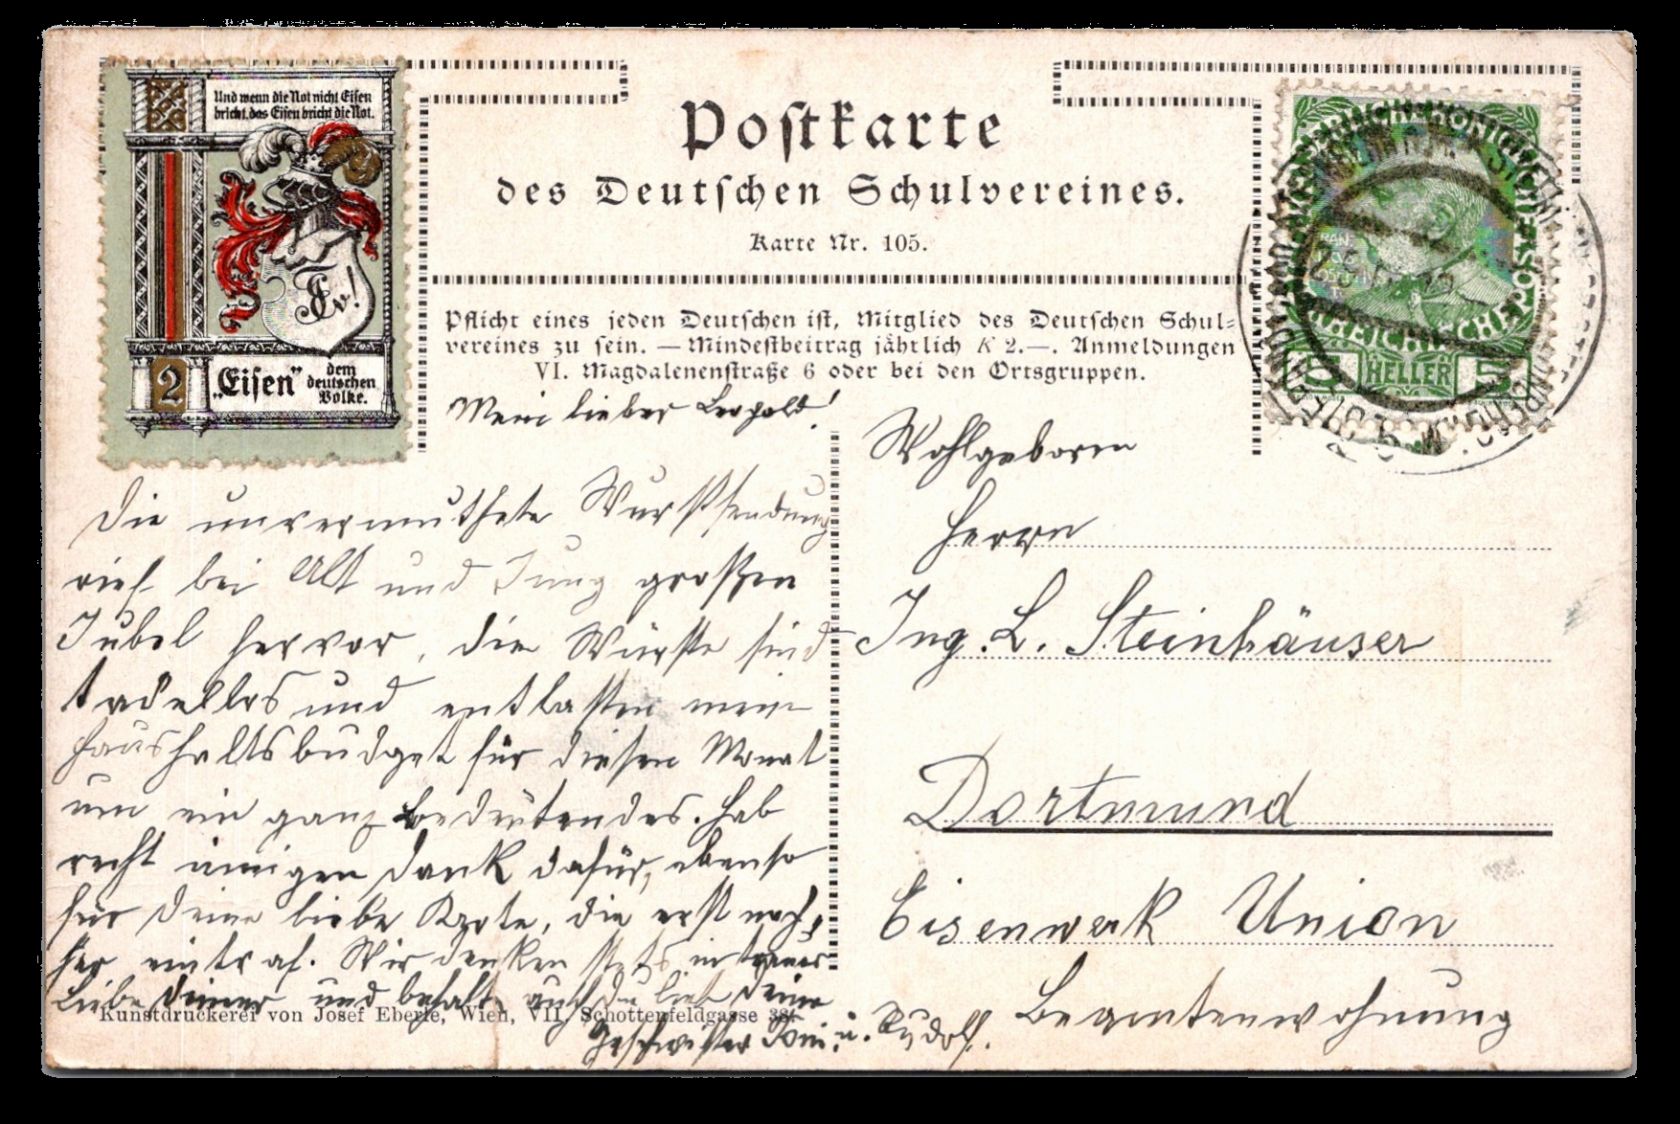 Und wenn die Not nicht Eisen
bricht, das Eisen bricht die Not.
2
„Eisen”
dem
deutschen
Volke.
Postkarte
des Deutschen Schulvereines.
Karte Nr. 105.
Pflicht eines jeden Deutschen ist, Mitglied des Deutschen Schul-
vereines zu sein. — Mindestbeitrag jährlich K 2.—. Anmeldungen
VI. Magdalenenstraße 6 oder bei den Ortsgruppen.
5 HELLER 5
Mein lieber Leopold!
Die unvermuthete Wurstsendung
rief bei Alt und Jung großen
Jubel hervor, die Würste sind
tadellos und entlasten mein
Haushaltsbudget für diesen Monat
um ein ganz bedeutendes. Hab
recht innigen Dank dafür, ebenso
für Deine liebe Karte, die erst nach-
her eintraf. Wir denken stets in treuer
Liebe Deiner und behalte auch Du lieb Deine
Geschwister Toni u. Rudolf.
Wohlgeboren
Herrn
Ing. L. Steinhäuser
Dortmund
Eisenwerk Union
Beamtenwohnung
Kunstdruckerei von Josef Eberle, Wien, VII, Schottenfeldgasse 38.